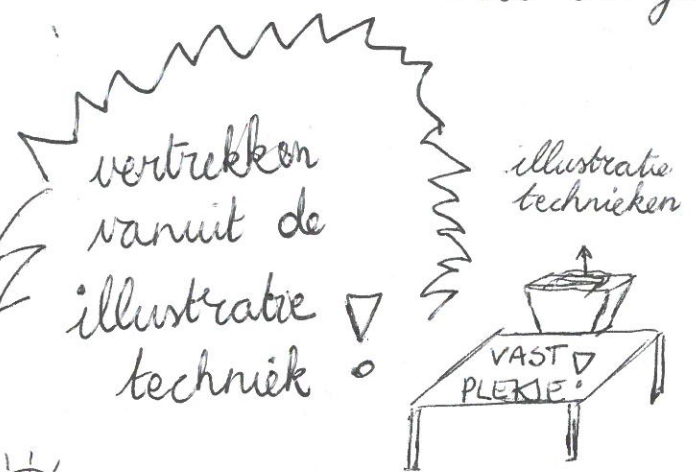 vertrekken
vanuit de
illustratie
techniek !
illustratie
technieken
VAST !
PLEKJE